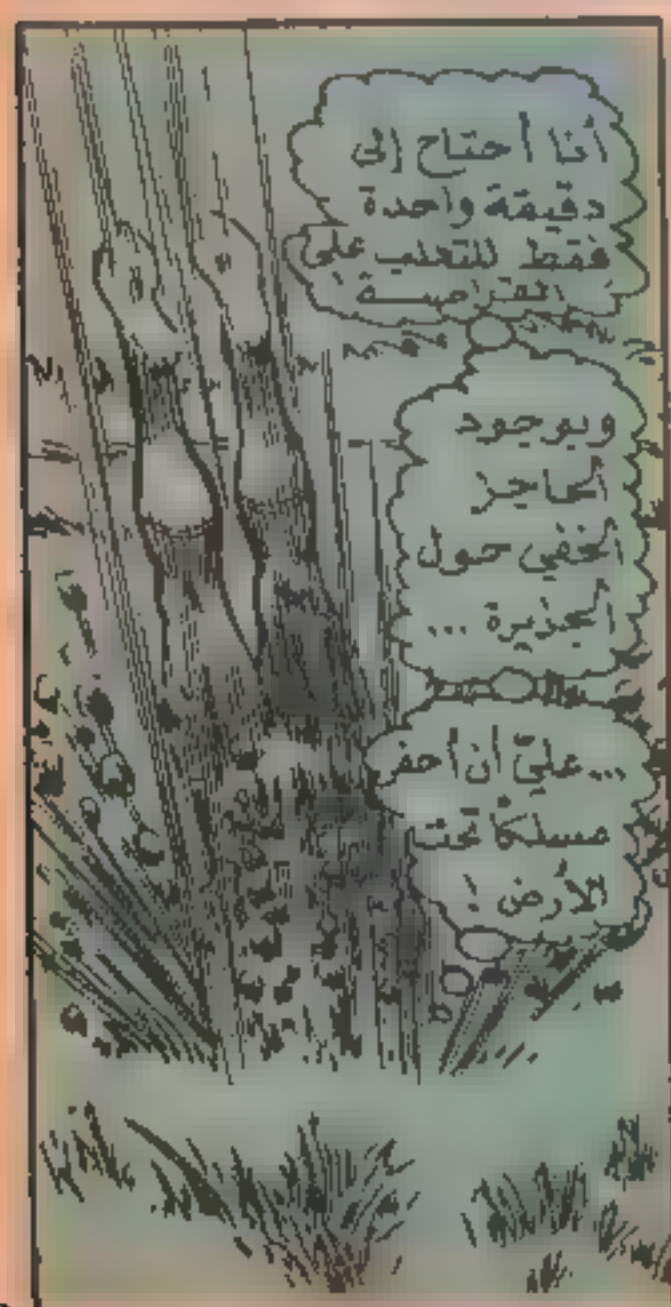 أنا أحتاج إلى
دقيقة واحدة
فقط للتغلب على
القراصنة
وبوجود
الحاجز
الخفي حول
الجزيرة ...
... عليّ أن أحفر
مسلكاً تحت
الأرض !